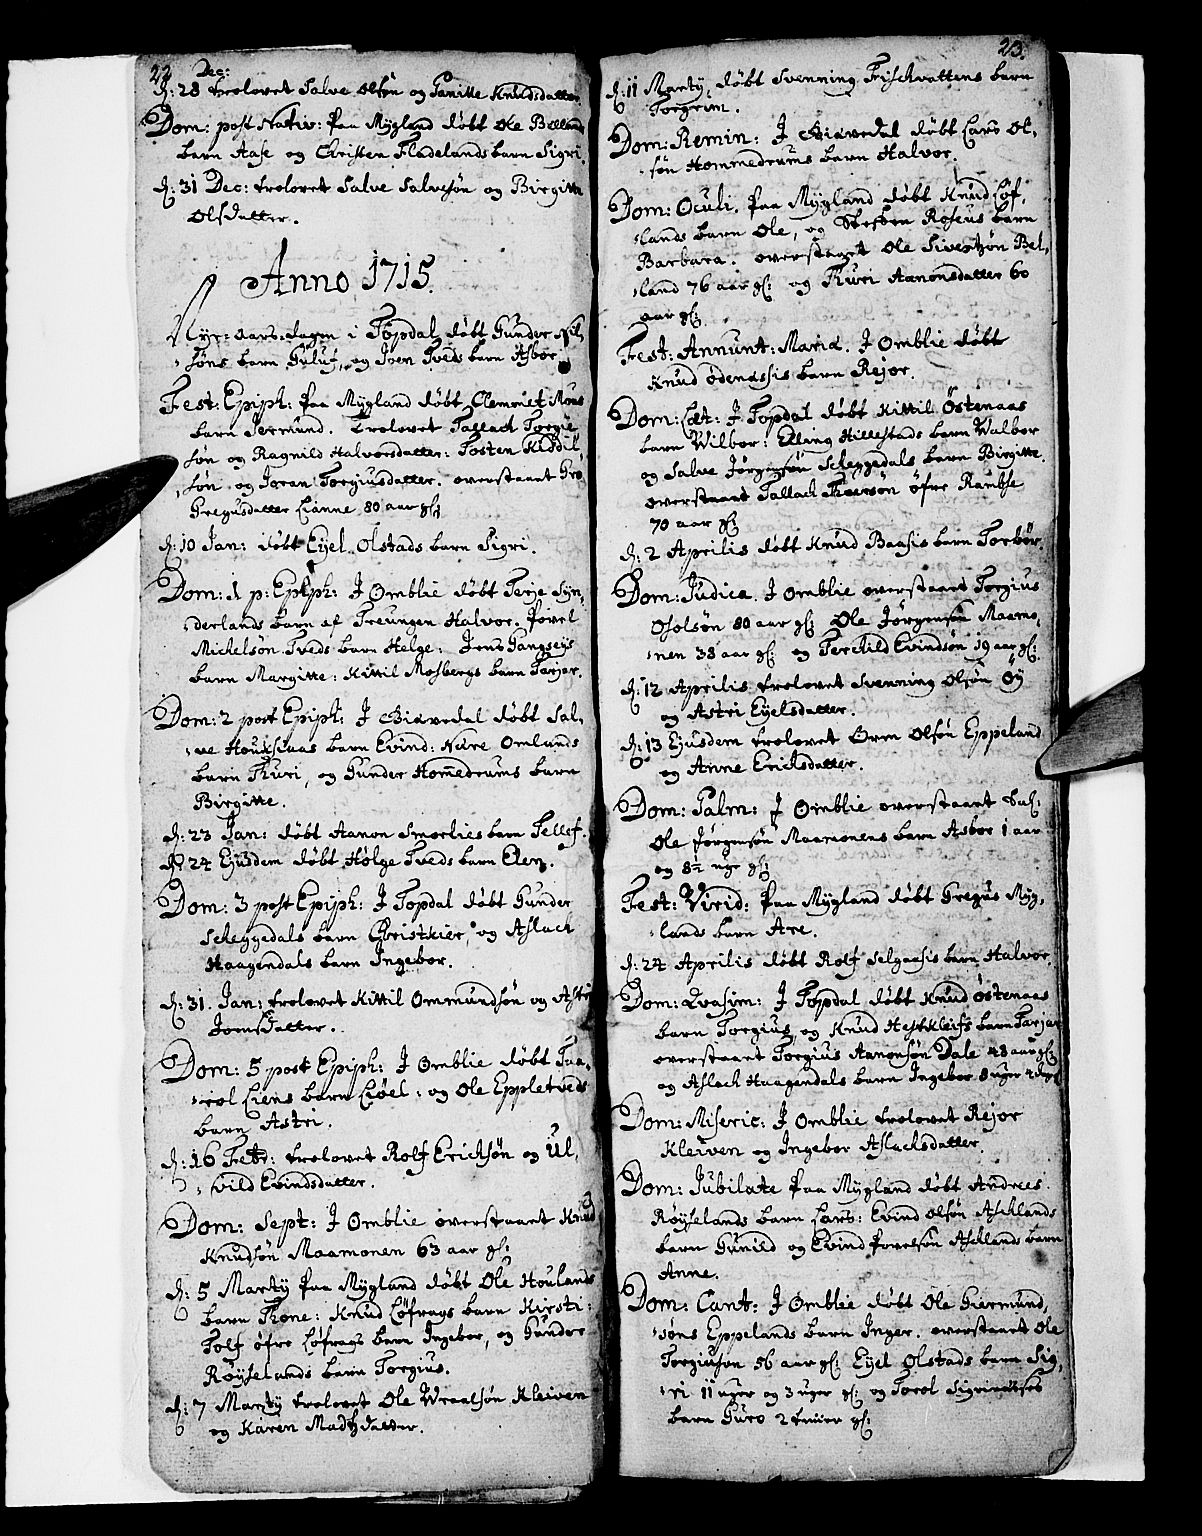 22 Dec:
d: 28 trolovet Salve Olsøn og Tanitte Knudsdatter
Dom: post Nativ: paa Mygland døbt Ole Bellands
barn Aase og Christen Fladelands barn Sigri.
d: 31 Dec: trolovet Salve Salvesøn og Birgitte
Olsdatter.
Anno 1715.
Nyt-aars-dagen i Topdal døbt Gunder Nil,
søns barn Guluf, og Iven Tveds barn Asbor
Fest: Epiph: paa Mygland døbt Clemmet Mons
barn Germund. trolovet Tallach Torgiu
søn og Ragnild Halvorsdatter: Tosten Kiddil
søn og Joran Torgiusdatter. overstaaet Gro
Gregusdatter Lianne 80 aar gl:
d: 10 Jan: døbt Eyel Olstads barn Sigri.
Dom: 1 p: Epiph: J Omblie døbt Terje Syn,
derlands barn af Treungen Halvor. Povel
Michelsøn Tveds barn Helge: Jens Gangseys
barn Margitte: Kittil Mosbergs barn Tarjer.
Dom: 2 post Epiph: J Giøvedal døbt Sal,
ve Houkaas barn Evind: Nære Omlands
barn Thuri, og Gunder Hommedrums barn
Birgitte.
d: 23 Jan: døbt Aanon Smorlies barn Tellef.
d: 24 Ejusdem døbt Hølge Tveds barn Elen.
Dom: 3 post Epiph: J Topdal døbt Gunder
Scheggedals barn Christhier, og Aslach
Haagendals barn Ingebor.
d: 31. Jan: trolovet Kittil Ommundsøn og Astri
Jomsdatter.
Dom: 5 post Epiph: J Omblie døbt Taa,
rol Liens barn Liøel, og Ole Eppletveds
barn Astri.
d: 16 Febr: trolovet Rolf Erichsøn og Ul,
vild Evindsdatter.
Dom: Sept: J Omblie overstaaet Knud
Knudsøn Maamonen 63 aar gl:
d: 5 Martij paa Mygland døbt Ole Houlands
barn Thone: Knud Løfrags barn Kirsti:
Tolf øfre Løfrags barn Ingebor, og Gunder
Røyselands barn Torgius.
d: 7 Martij trolovet Ole Wraalsøn Kleiven
og Karen Madtzdatter.
23.
d: 11 Martij, døbt Svenning Fischvattens barn
Torgrim.
Dom: Remin: J Giøvedal døbt Lars Ol,
søn Hommedrums barn Halvor.
Dom: Oculi. paa Mygland døbt Knud Løf,
lands barn Ole, og Steffen Roseus barn
Barbara. overstaaet Ole Sivertsøn Bel,
land 76 aar gl: og Thuri Aanonsdatter 60
aar gl:
Fest: Annunt: Mariæ. J Omblie døbt
Knud Ødenæssis barn Rejor.
Dom: Læt: J Topdal døbt Kittil Östenaas
barn Wilbor: Elling Hillestads barn Walbor
og Salve Jørgensøn Scheggedals barn Birgitte.
overstaaet Tallach Thorsøn øfre Ramse
70 aar gl:
d: 2 Aprilis døbt Knud Baasis barn Torbor.
Dom: Judica. J Omblie overstaaet Torgius
Osolsøn 80 aar gl: Ole Jørgensøn Maamo,
nen 38 aar gl: og Terchild Evindsøn 19 aar gl:
d: 12 Aprilis trolovet Svenning Olsøn Öy
og Astri Eyelsdatter.
d: 13 Ejusdem trolovet Orm Olsøn Eppeland
og Anne Erichsdatter.
Dom: Palm: J Omblie overstaaet Sal:
Ole Jørgensøn Maamonens barn Asbor 1 aar
og 8½ uge gl:
Fest: Virid: paa Mygland døbt Gregus Myg,
lands barn Are.
d: 24 Aprilis døbt Rolf Selgaasis barn Halvor.
Dom: Qvasim: J Topdal døbt Knud Östenaas
barn Torgius, og Knud Hestkleifs barn Tarjer
overstaaet Torgius Aanonsøn Dale 48 aar gl:
og Aslach Haagendals barn Ingebor 8 uger
Dom: Miseric: J Omblie trolovet Rejor
Kleiven og Ingebor Aslachsdatter.
Dom: Jubilate paa Mygland døbt Andrees
Røyselands barn Lars: Evind Olsøn Aschlands
barn Gunild og Evind Povelsøn Aschlands barn
Anne.
Dom: Cant: J Omblie døbt Ole Giermund,
søns Eppelands barn Inger. overstaaet Ole
Torgiuson 56 aar gl: Eyel Olstads barn Sig,
ri 11 uger og 3 uger gl: og Torol Sigrinæses
barn Guro 2 timer gl: